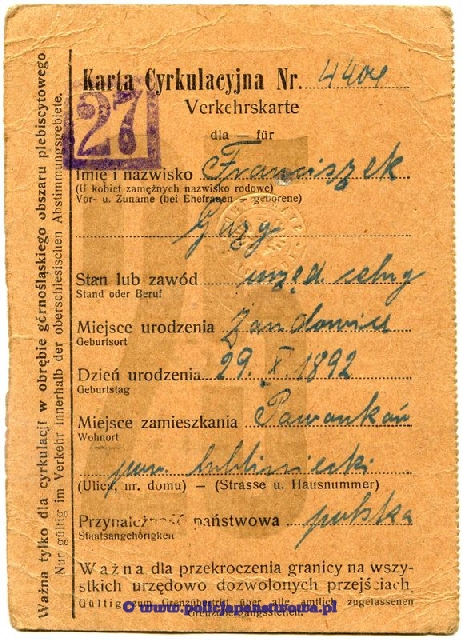 Karta Cyrkulacyjna Nr. 4404
Verkehrskarte
27
dla — für
Imię i nazwisko Franciszek
(U kobiet zamężnych nazwisko rodowe)
Vor- u. Zuname (bei Ehefrauen - geborene)
Guzy
Stan lub zawód urzęd celny
Stand oder Beruf
Miejsce urodzenia Zandowice
Geburtsort
Dzień urodzenia 29. X 1892
Geburtstag
Miejsce zamieszkania Pawonków
Wohnort
pow. lubliniecki
(Ulica, nr. domu) — (Strasse u. Hausnummer)
Przynależność państwowa polska
Staatsangehörigkeit
Ważna dla przekroczenia granicy na wszy-
stkich urzędowo dozwolonych przejściach
Gültig zum Grenzübertritt über alle amtlich zugelassenen
Grenzübergangsstellen.
© www.policjapanstwowa.pl
Ważna tylko dla cyrkulacji w obrębie górnośląskiego obszaru plebiscytowego
Nur gültig im Verkehr innerhalb der oberschlesischen Abstimmungsgebiete.